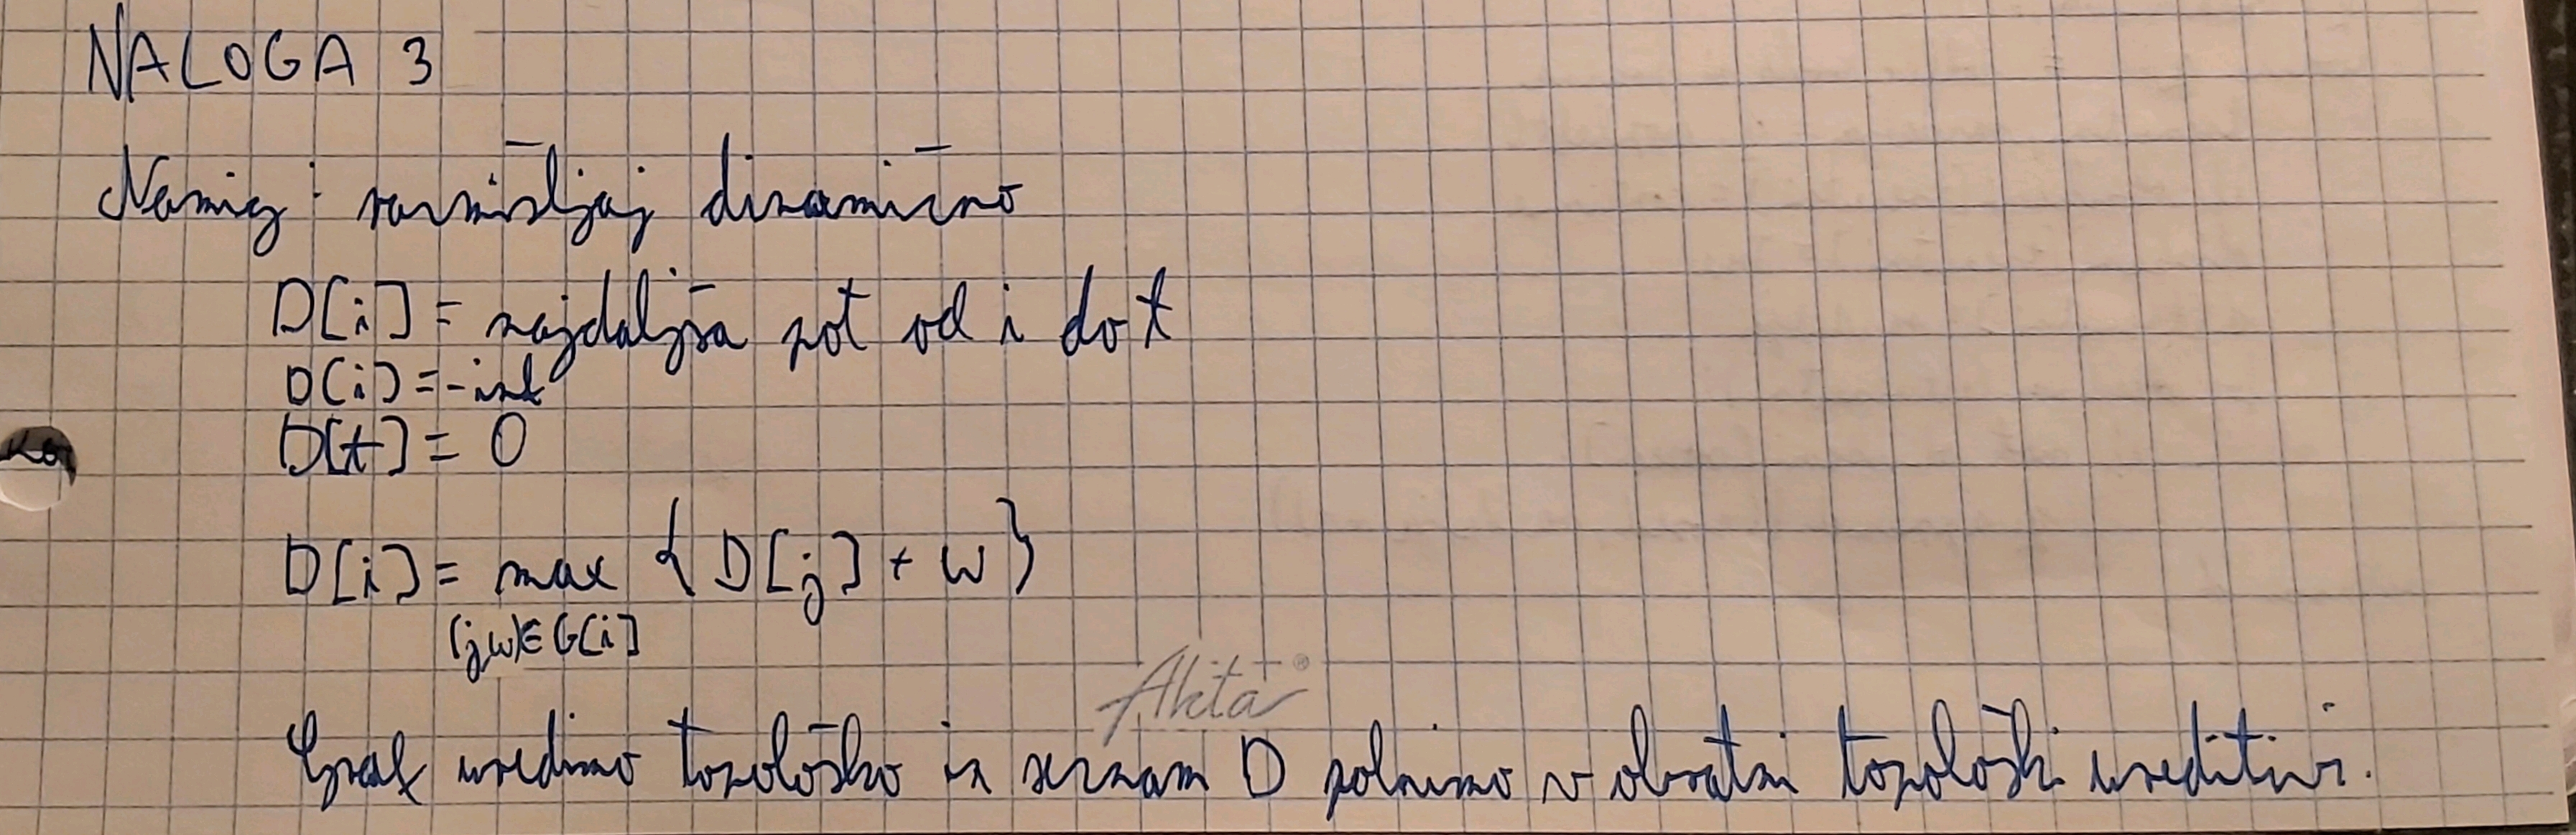 NALOGA 3
Namig: razmišljaj dinamično
D[i] = najdaljša pot od i do t
D[i] = -inf
D[t] = 0
D[i] = max {D[j] + w}
(j,w)∈G[i]
Akta®
Graf uredimo topološko in seznam D polnimo v obratni topološki ureditvi.